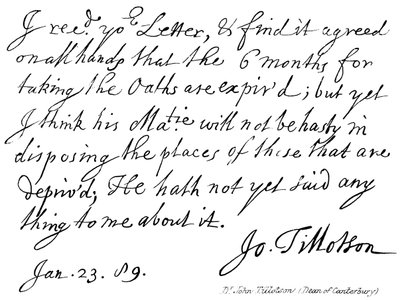 I recd. yor Letter, & find it agreed
on all hands that the 6 months for
taking the Oaths are expir'd; but yet
I think his Matie. will not be hasty in
disposing the places of those that are
depriv'd; He hath not yet said any
thing to me about it.
Jo. Tillotson
Jan. 23. 89.
Dr. John Tillotson (Dean of Canterbury)